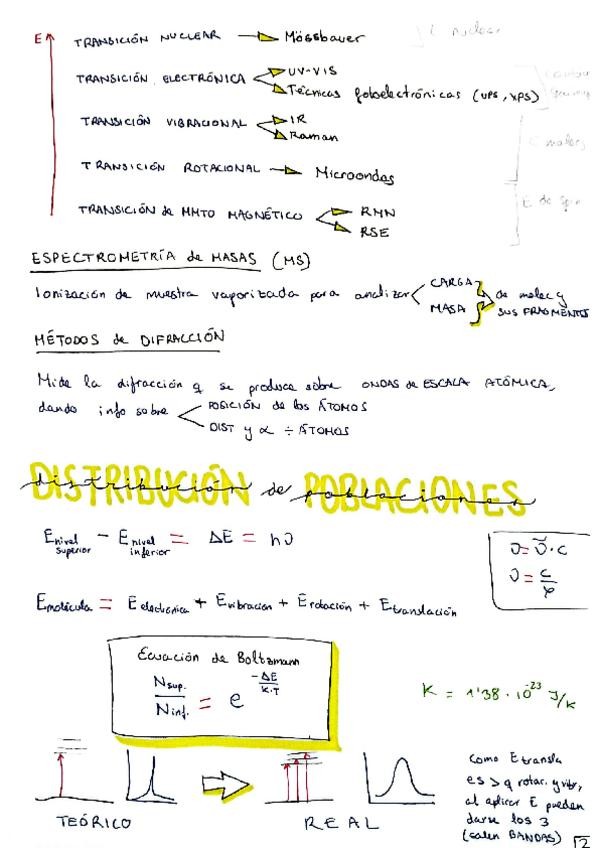 E TRANSICIÓN NUCLEAR Mössbauer
TRANSICIÓN ELECTRÓNICA UV-VIS
Técnicas fotoelectrónicas (UPS, XPS)
TRANSICIÓN VIBRACIONAL IR
Raman
TRANSICIÓN ROTACIONAL Microondas
E de spin
TRANSICIÓN de MMTO MAGNÉTICO RMN
RSE
ESPECTROMETRÍA de MASAS (MS)
Ionización de muestra vaporizada para analizar CARGA
MASA
de molec y
sus FRAGMENTOS
MÉTODOS de DIFRACCIÓN
Mide la difracción q se produce sobre ONDAS de ESCALA ATÓMICA,
dando info sobre POSICIÓN de los ÁTOMOS
DIST y ∝ ÷ ÁTOMOS
DISTRIBUCIÓN de POBLACIONES
distribución de poblaciones
E nivel superior - E nivel inferior = ΔE = hυ
υ = ῡ · c
υ = c/λ
Emolécula = Eelectrónica + Evibración + Erotación + Etranslación
Ecuación de Boltzmann
Nsup. / Ninf. = e^(-ΔE / K·T)
K = 1'38 · 10^-23 J/K
TEÓRICO
REAL
Como Etransla
es > q rotac. y vibr,
al aplicar E pueden
darse los 3
(salen BANDAS)
2